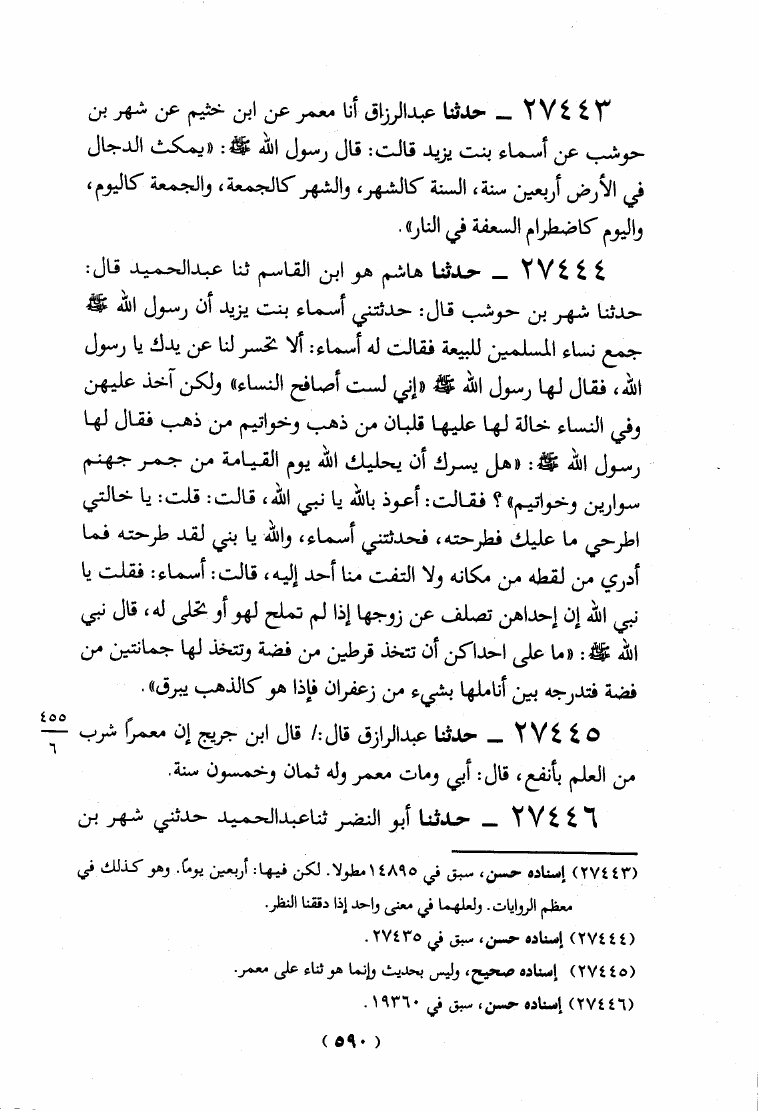 ٢٧٤٤٣ ــ حدثنا عبدالرزاق أنا معمر عن ابن خثيم عن شهر بن
حوشب عن أسماء بنت يزيد قالت: قال رسول الله ﷺ: «يمكث الدجال
في الأرض أربعين سنة، السنة كالشهر، والشهر كالجمعة، والجمعة كاليوم،
واليوم كاضطرام السعفة في النار».
٢٧٤٤٤ ــ حدثنا هاشم هو ابن القاسم ثنا عبدالحميد قال:
حدثنا شهر بن حوشب قال: حدثتني أسماء بنت يزيد أن رسول الله ﷺ
جمع نساء المسلمين للبيعة فقالت له أسماء: ألا تحسر لنا عن يدك يا رسول
الله، فقال لها رسول الله ﷺ «إني لست أصافح النساء» ولكن آخذ عليهن
وفي النساء خالة لها عليها قلبان من ذهب وخواتيم من ذهب فقال لها
رسول الله ﷺ: «هل يسرك أن يحليك الله يوم القيامة من جمر جهنم
سوارين وخواتيم» ؟ فقالت: أعوذ بالله يا نبي الله، قالت: قلت: يا خالتي
اطرحي ما عليك فطرحته، فحدثتني أسماء، والله يا بني لقد طرحته فما
أدري من لقطه من مكانه ولا التفت منا أحد إليه، قالت: أسماء: فقلت يا
نبي الله إن إحداهن تصلف عن زوجها إذا لم تملح لهو أو تحلى له، قال نبي
الله ﷺ: «ما على احداكن أن تتخذ قرطين من فضة وتتخذ لها جمانتين من
فضة فتدرجه بين أناملها بشيء من زعفران فإذا هو كالذهب يبرق».
٢٧٤٤٥ ــ حدثنا عبدالرازق قال:/ قال ابن جريج إن معمراً شرب
٤٥٥
٦
من العلم بأنفع، قال: أبي ومات معمر وله ثمان وخمسون سنة.
٢٧٤٤٦ ــ حدثنا أبو النضر ثناعبدالحميد حدثني شهر بن
(٢٧٤٤٣) إسناده حسن، سبق في ١٤٨٩٥مطولا. لكن فيها: أربعين يوماً. وهو كذلك في
معظم الروايات. ولعلهما في معنى واحد إذا دققنا النظر.
(٢٧٤٤٤) إسناده حسن، سبق في ٢٧٤٣٥.
(٢٧٤٤٥) إسناده صحيح، وليس بحديث وإنما هو ثناء على معمر.
(٢٧٤٤٦) إسناده حسن، سبق في ١٩٣٦٠.
(٥٩٠)